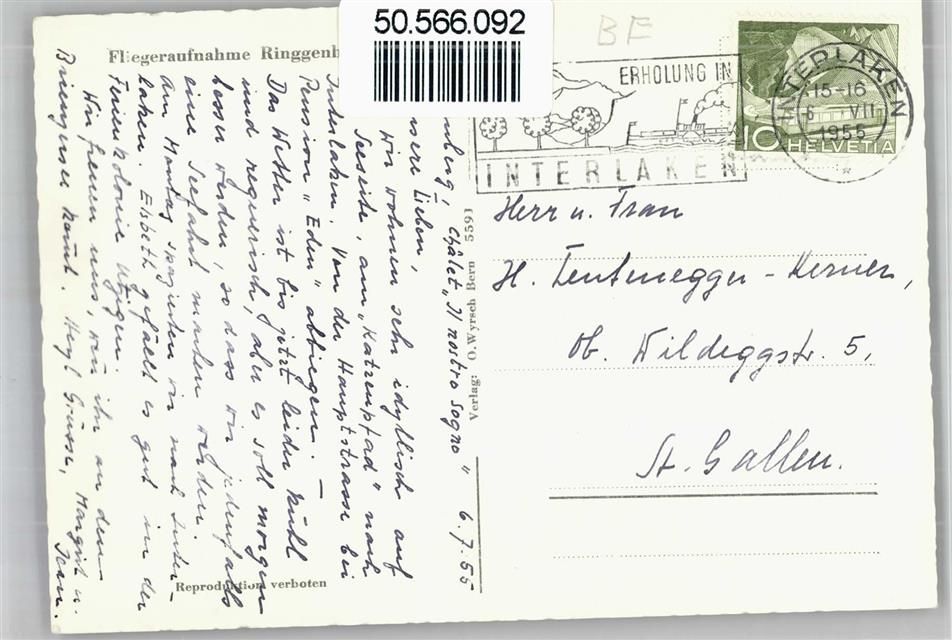 50.566.092
BE
Fliegeraufnahme Ringgenb
ERHOLUNG IN
INTERLAKEN
INTERLAKEN
15-16
6 VII
1955
10 HELVETIA
Herr u. Frau
H. Tentenegger - Kerner,
Ob. Wildeggstr. 5,
St. Gallen.
Verlag: O. Wyrsch Bern 5591
Châlet „Il nostro sogno" 6.7.55
nsere Lieben,
Wir wohnen sehr idyllisch auf
Seeseite, am „Katzenpfad" nach
Interlaken. Von der Hauptstrasse bei
Pension „Eden" abbiegen. —
Das Wetter ist bis jetzt leider kühl
und regnerisch, aber es soll morgen
besser werden, so dass wir jedenfalls
eine Seefahrt machen werden.
Am Montag spazierten wir nach Inter-
laken. Elsbeth gefällt es gut in der
Ferienkolonie
Wir freuen uns, wen ihr an den
Brienzersee kommt. Hezl. Grüsse, Margrit u.
Jean.
Reproduktion verboten